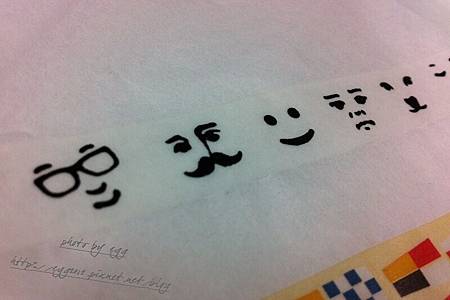 photo by egg
http://eggend.pixnet.net/blog